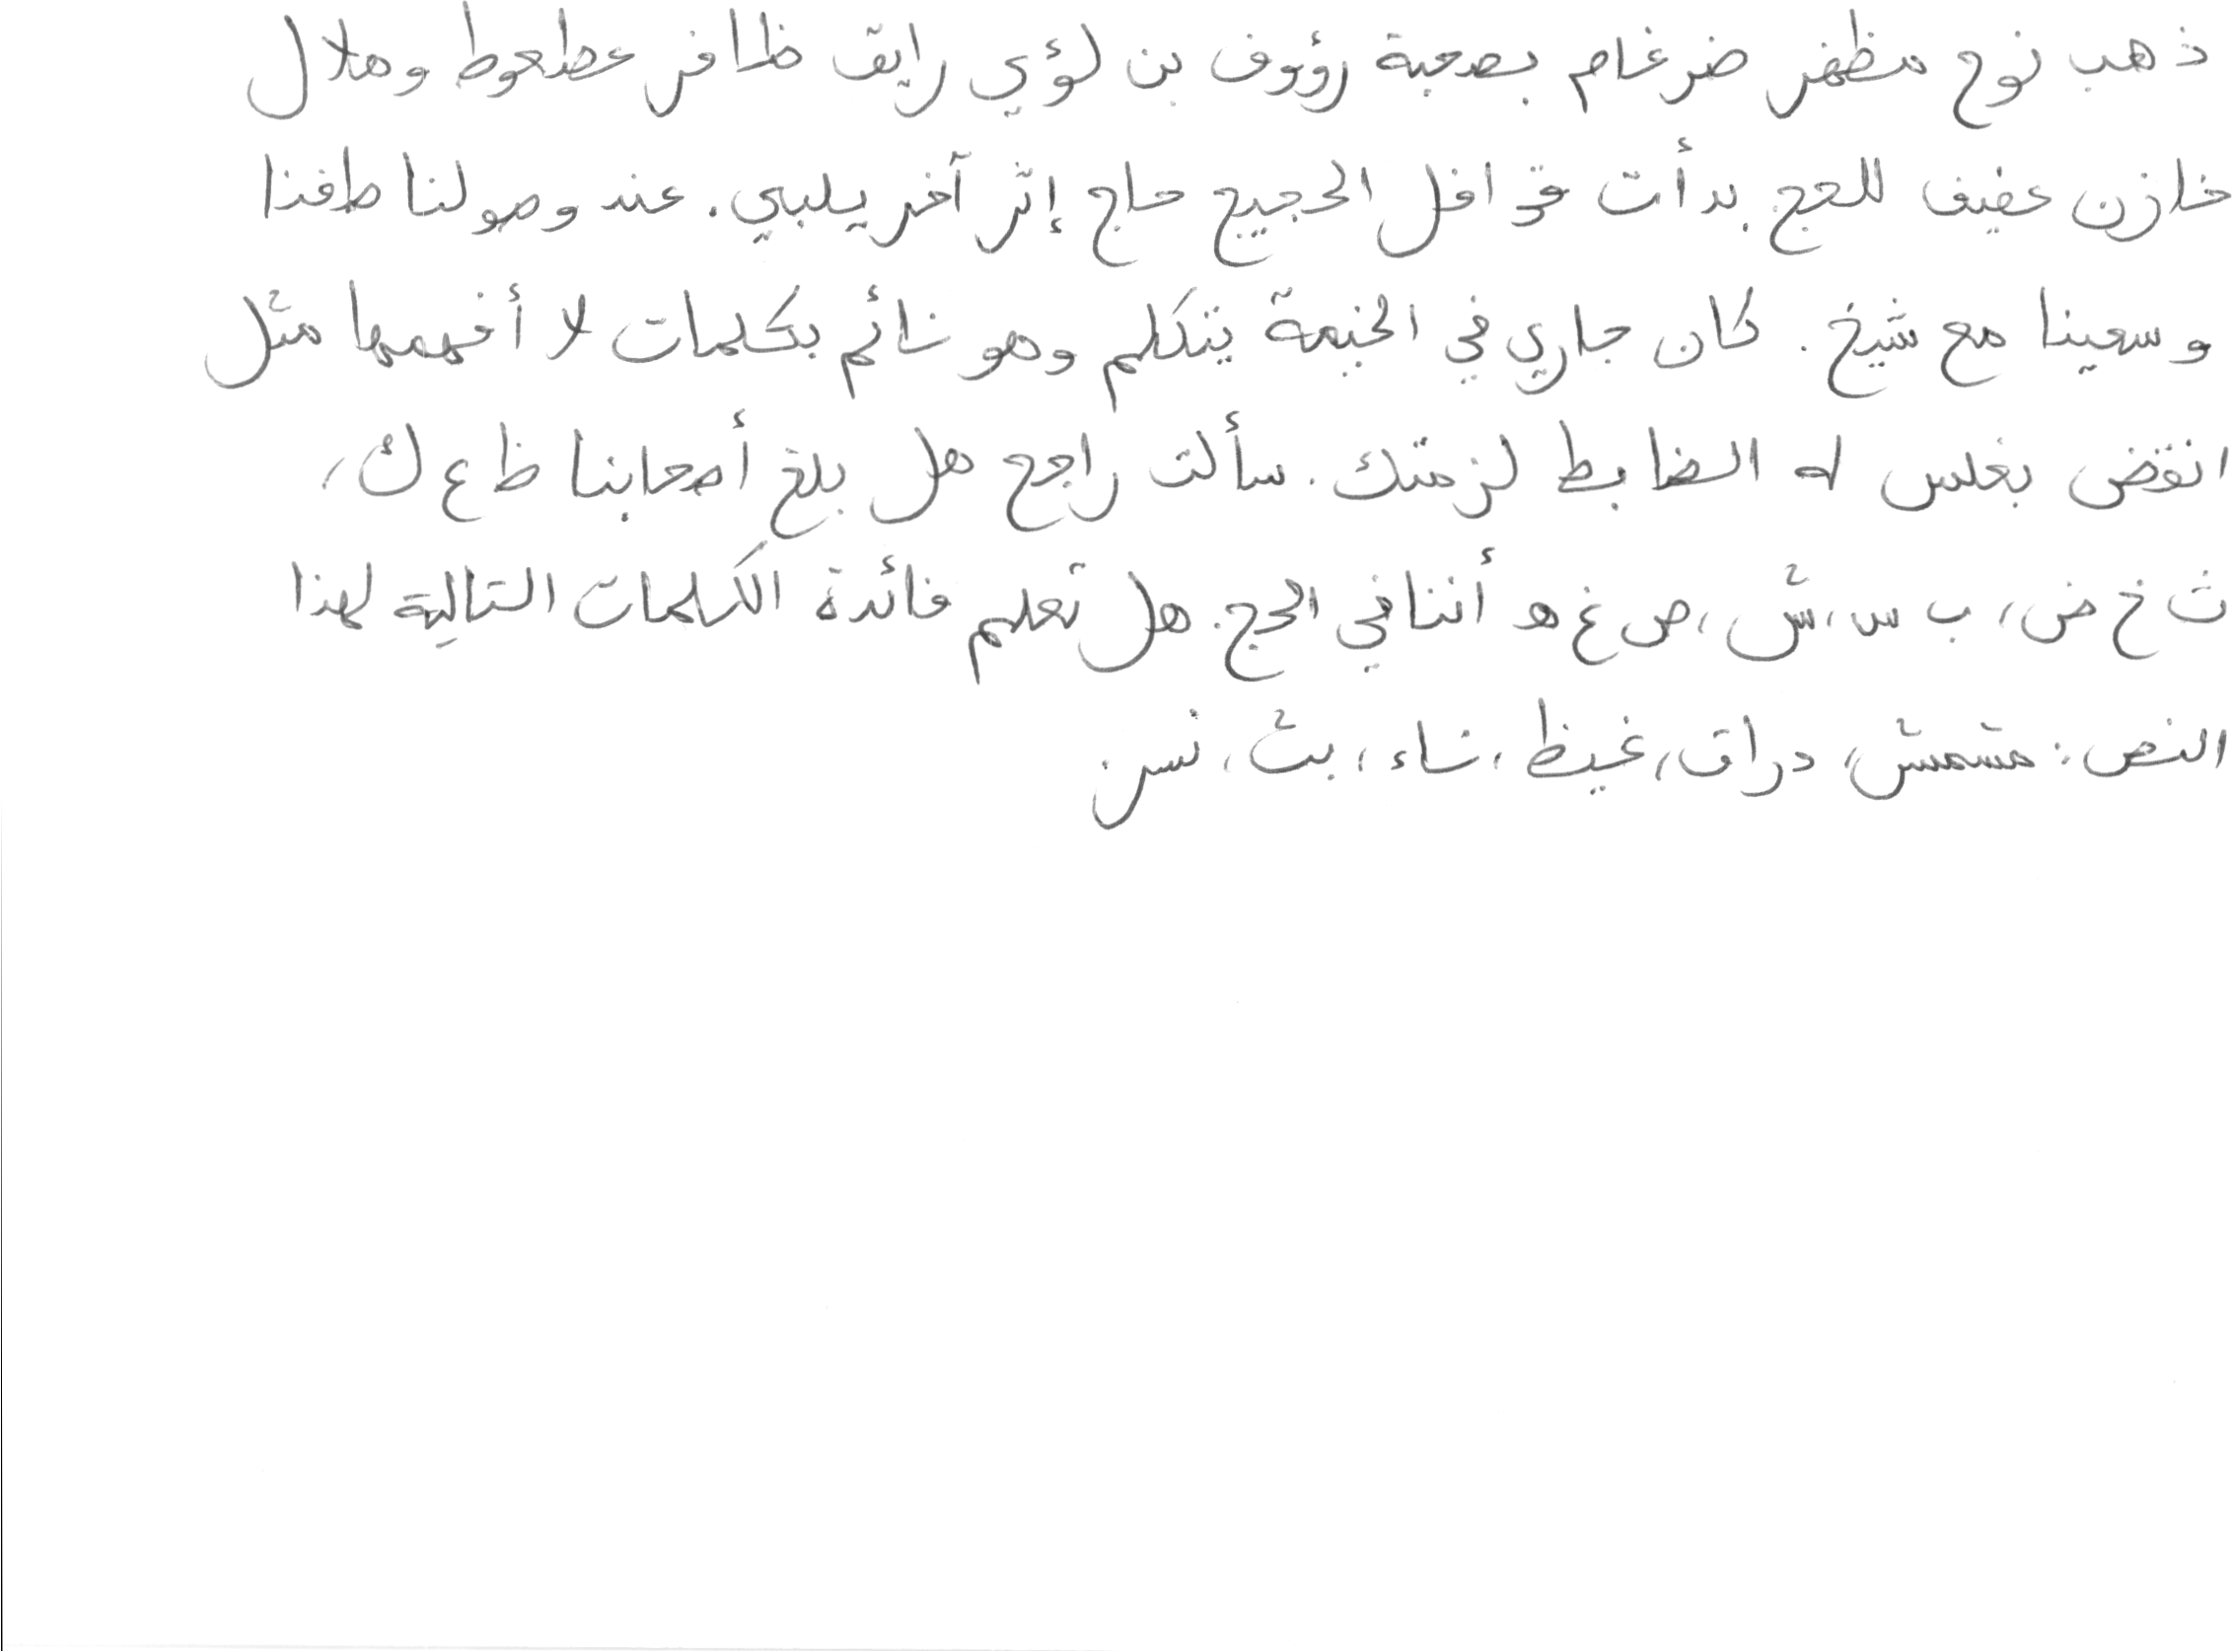 ذهب نوح مظفر ضرغام بصحبة رؤوف بن لؤي رايق ظافر عطعوط وهلال
خازن عفيف للحج. بدأت قوافل الحجيج حاج إثر آخر يلبي. عند وصولنا طفنا
وسعينا مع شيخ. كان جاري في الخيمة يتكلم وهو نائم بكلمات لا أفهمها مثل
انقض بغلس له الضابط لزمتك. سألت راجح هل بلغ أصحابنا ظ ع ك،
ث خ ض، ب س، ش، ص غ هـ أننا في الحج. هل تعلم فائدة الكلمات التالية لهذا
النص: مشمش، دراق، غيظ، شاء، بث، نسر.